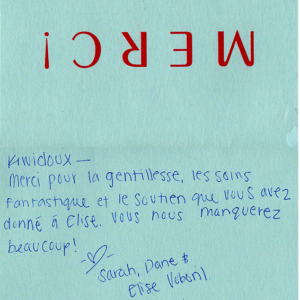 MERCI!
Kiwidoux —
Merci pour la gentillesse, les soins
fantastique et le soutien que vous avez
donné à Elise. Vous nous manquerez
beaucoup!
Sarah, Dane &
Elise